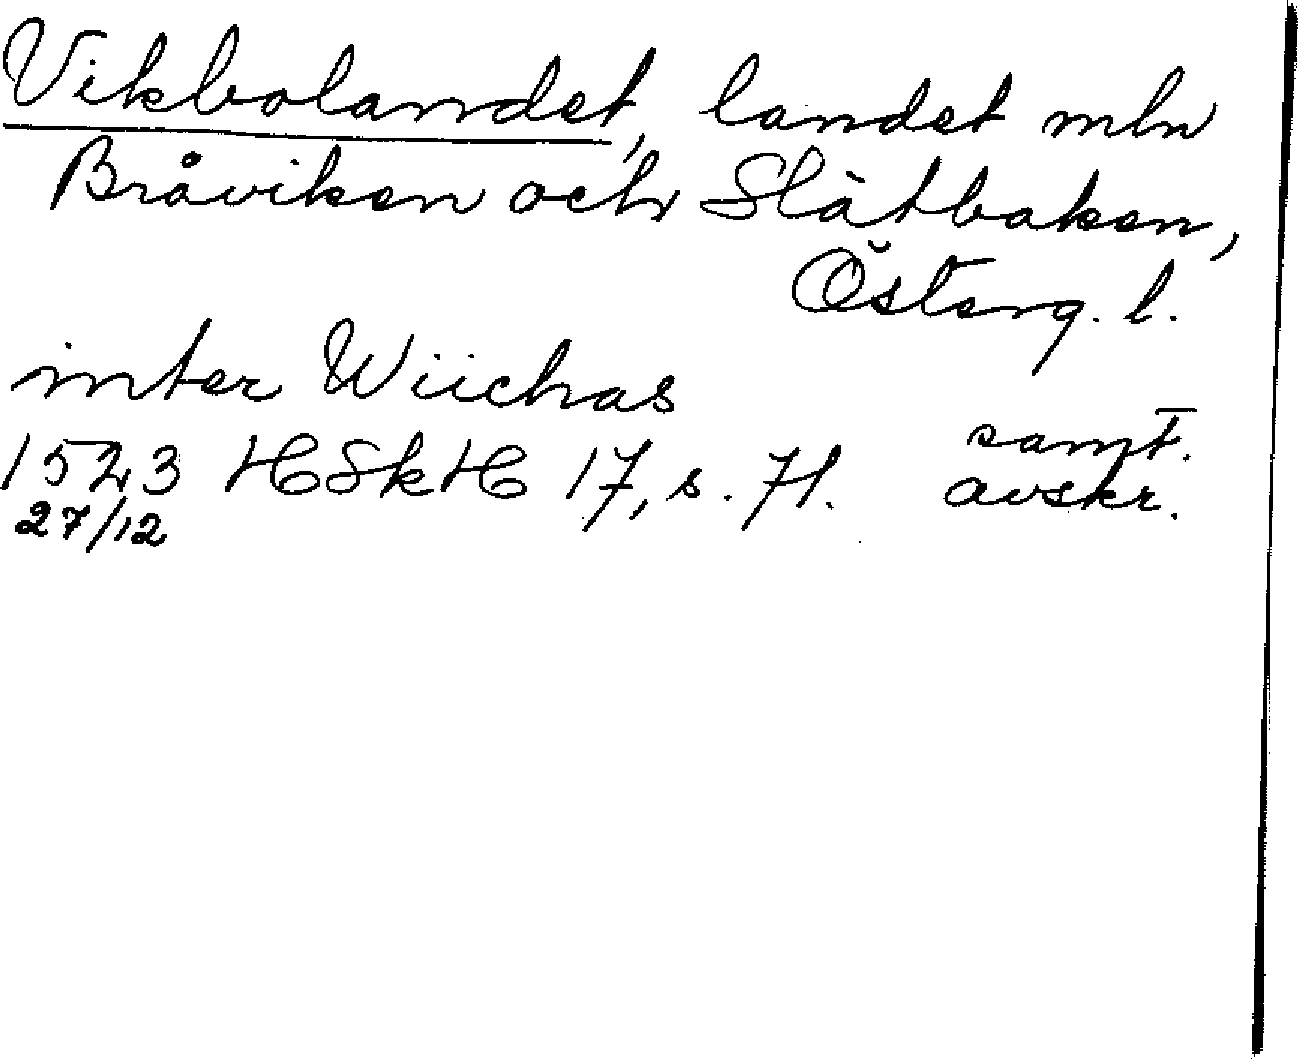 Vikbolandet, landet mln
Bråviken och Slätbaken,
Österg. l.
inter Wiichas
1523 HSkH 17, s. 71. samt.
27/12 avskr.